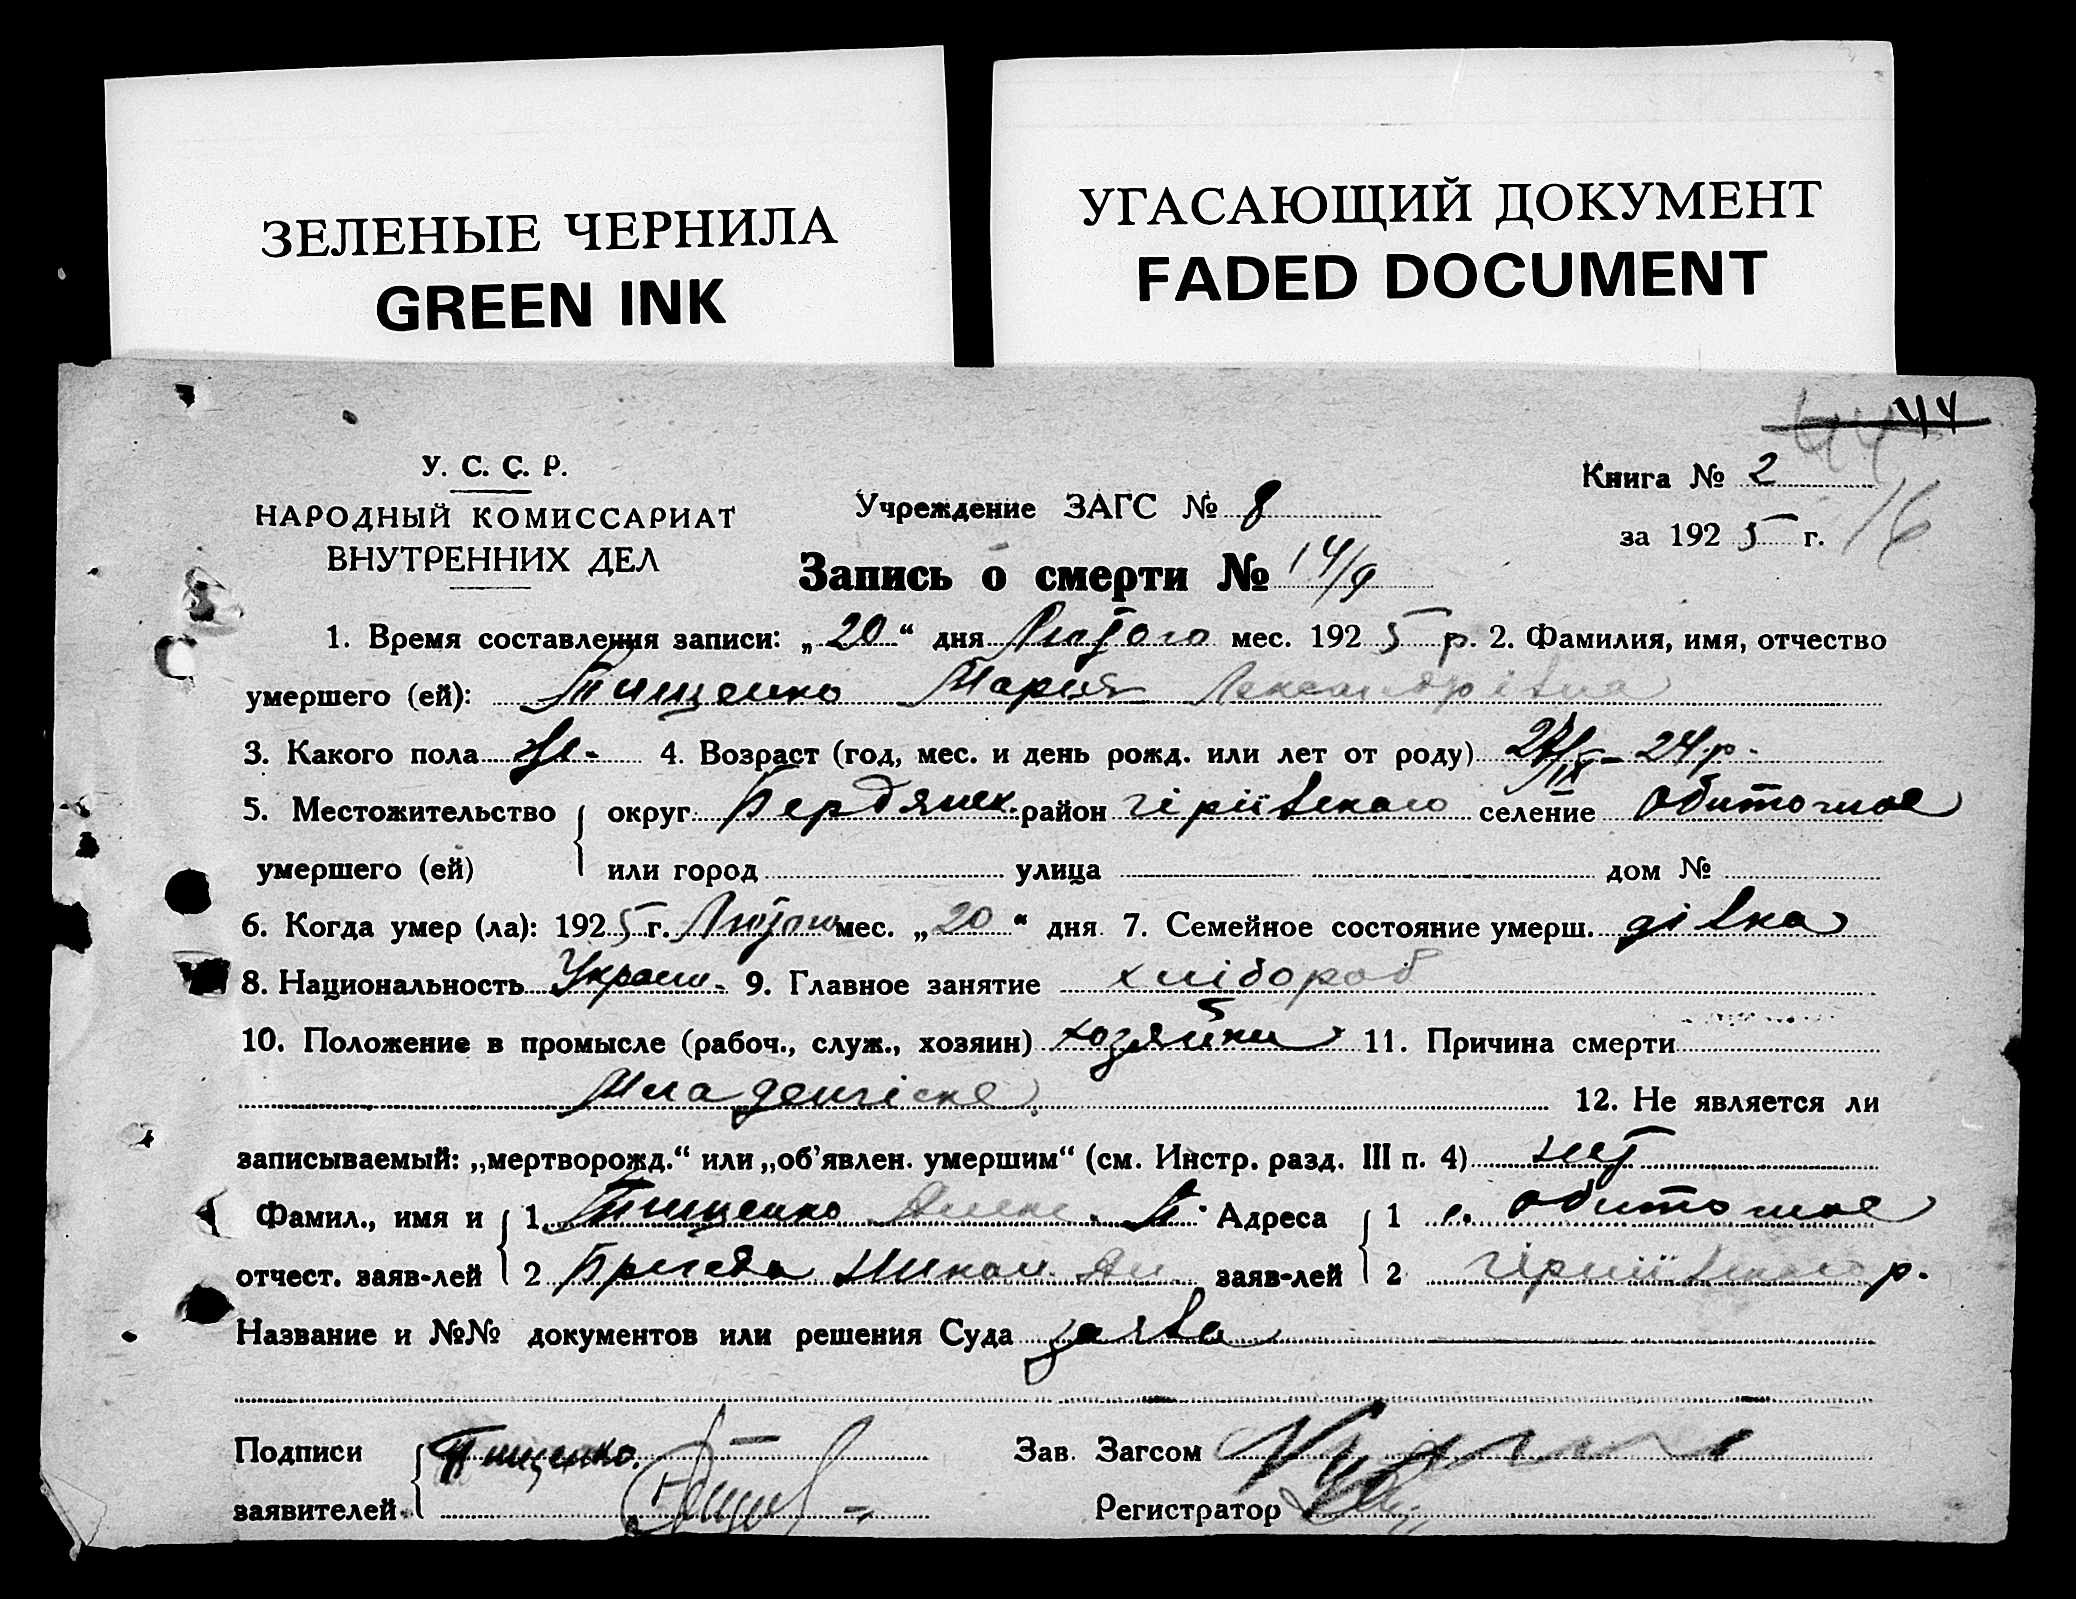 ЗЕЛЕНЫЕ ЧЕРНИЛА
GREEN INK
УГАСАЮЩИЙ ДОКУМЕНТ
FADED DOCUMENT
44 44
У. С. С. Р.
НАРОДНЫЙ КОМИССАРИАТ
ВНУТРЕННИХ ДЕЛ
Учреждение ЗАГС № 8
Книга № 2
за 1925 г. 16
Запись о смерти № 14/9
1. Время составления записи: „20“ дня Лютого мес. 1925 р. 2. Фамилия, имя, отчество
умершего (ей): Тищенко Мария Лександрівна
3. Какого пола ж. 4. Возраст (год, мес. и день рожд. или лет от роду) 24 р.
5. Местожительство округ Бердянск. район селение Обиточное
умершего (ей) или город улица дом №
6. Когда умер (ла): 1925 г. Лютого мес. „20“ дня 7. Семейное состояние умерш. дівка
8. Национальность Украин. 9. Главное занятие хлібороб
10. Положение в промысле (рабоч., служ., хозяин) хозяйки 11. Причина смерти
12. Не является ли
записываемый: „мертворожд.“ или „об’явлен. умершим“ (см. Инстр. разд. III п. 4) нет
Фамил., имя и 1 Тищенко Алекс. Адреса 1 с. Обиточное
отчест. заяв-лей 2 Никол. заяв-лей 2 р.
Название и №№ документов или решения Суда заява
Подписи Тищенко Зав. Загсом
заявителей Регистратор